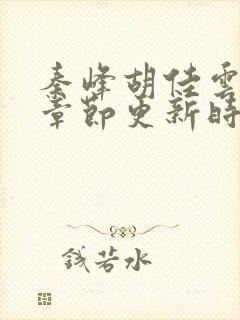 秦峰胡佳雲
章節更新時
錢若水